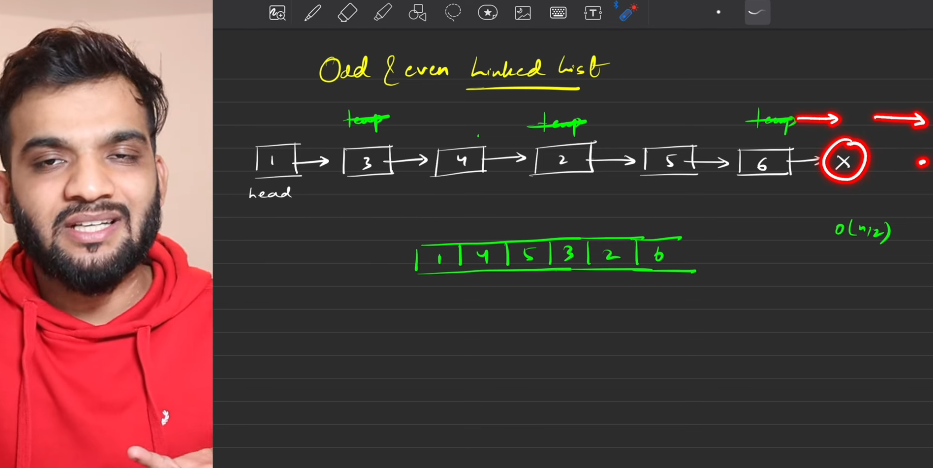 Odd & even Linked List
temp temp temp
1 3 4 2 5 6 X
head
O(n/2)
1 4 5 3 2 6